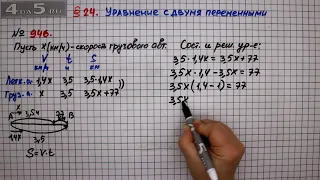 4APP5.RU
§ 24. Уравнение с двумя переменными
№ 946.
Пусть x(км/ч) - скорость грузового авт.
V t S
км/ч ч км
Легк. а. 1,4x 3,5 3,5·1,4x
Груз. а. x 3,5 3,5x+77
A 3,5ч 77 B
1,4x 3,5
S=V·t
Сост. и реш. ур-е:
3,5·1,4x = 3,5x+77
3,5x·1,4-3,5x=77
3,5x(1,4-1)=77
3,5x